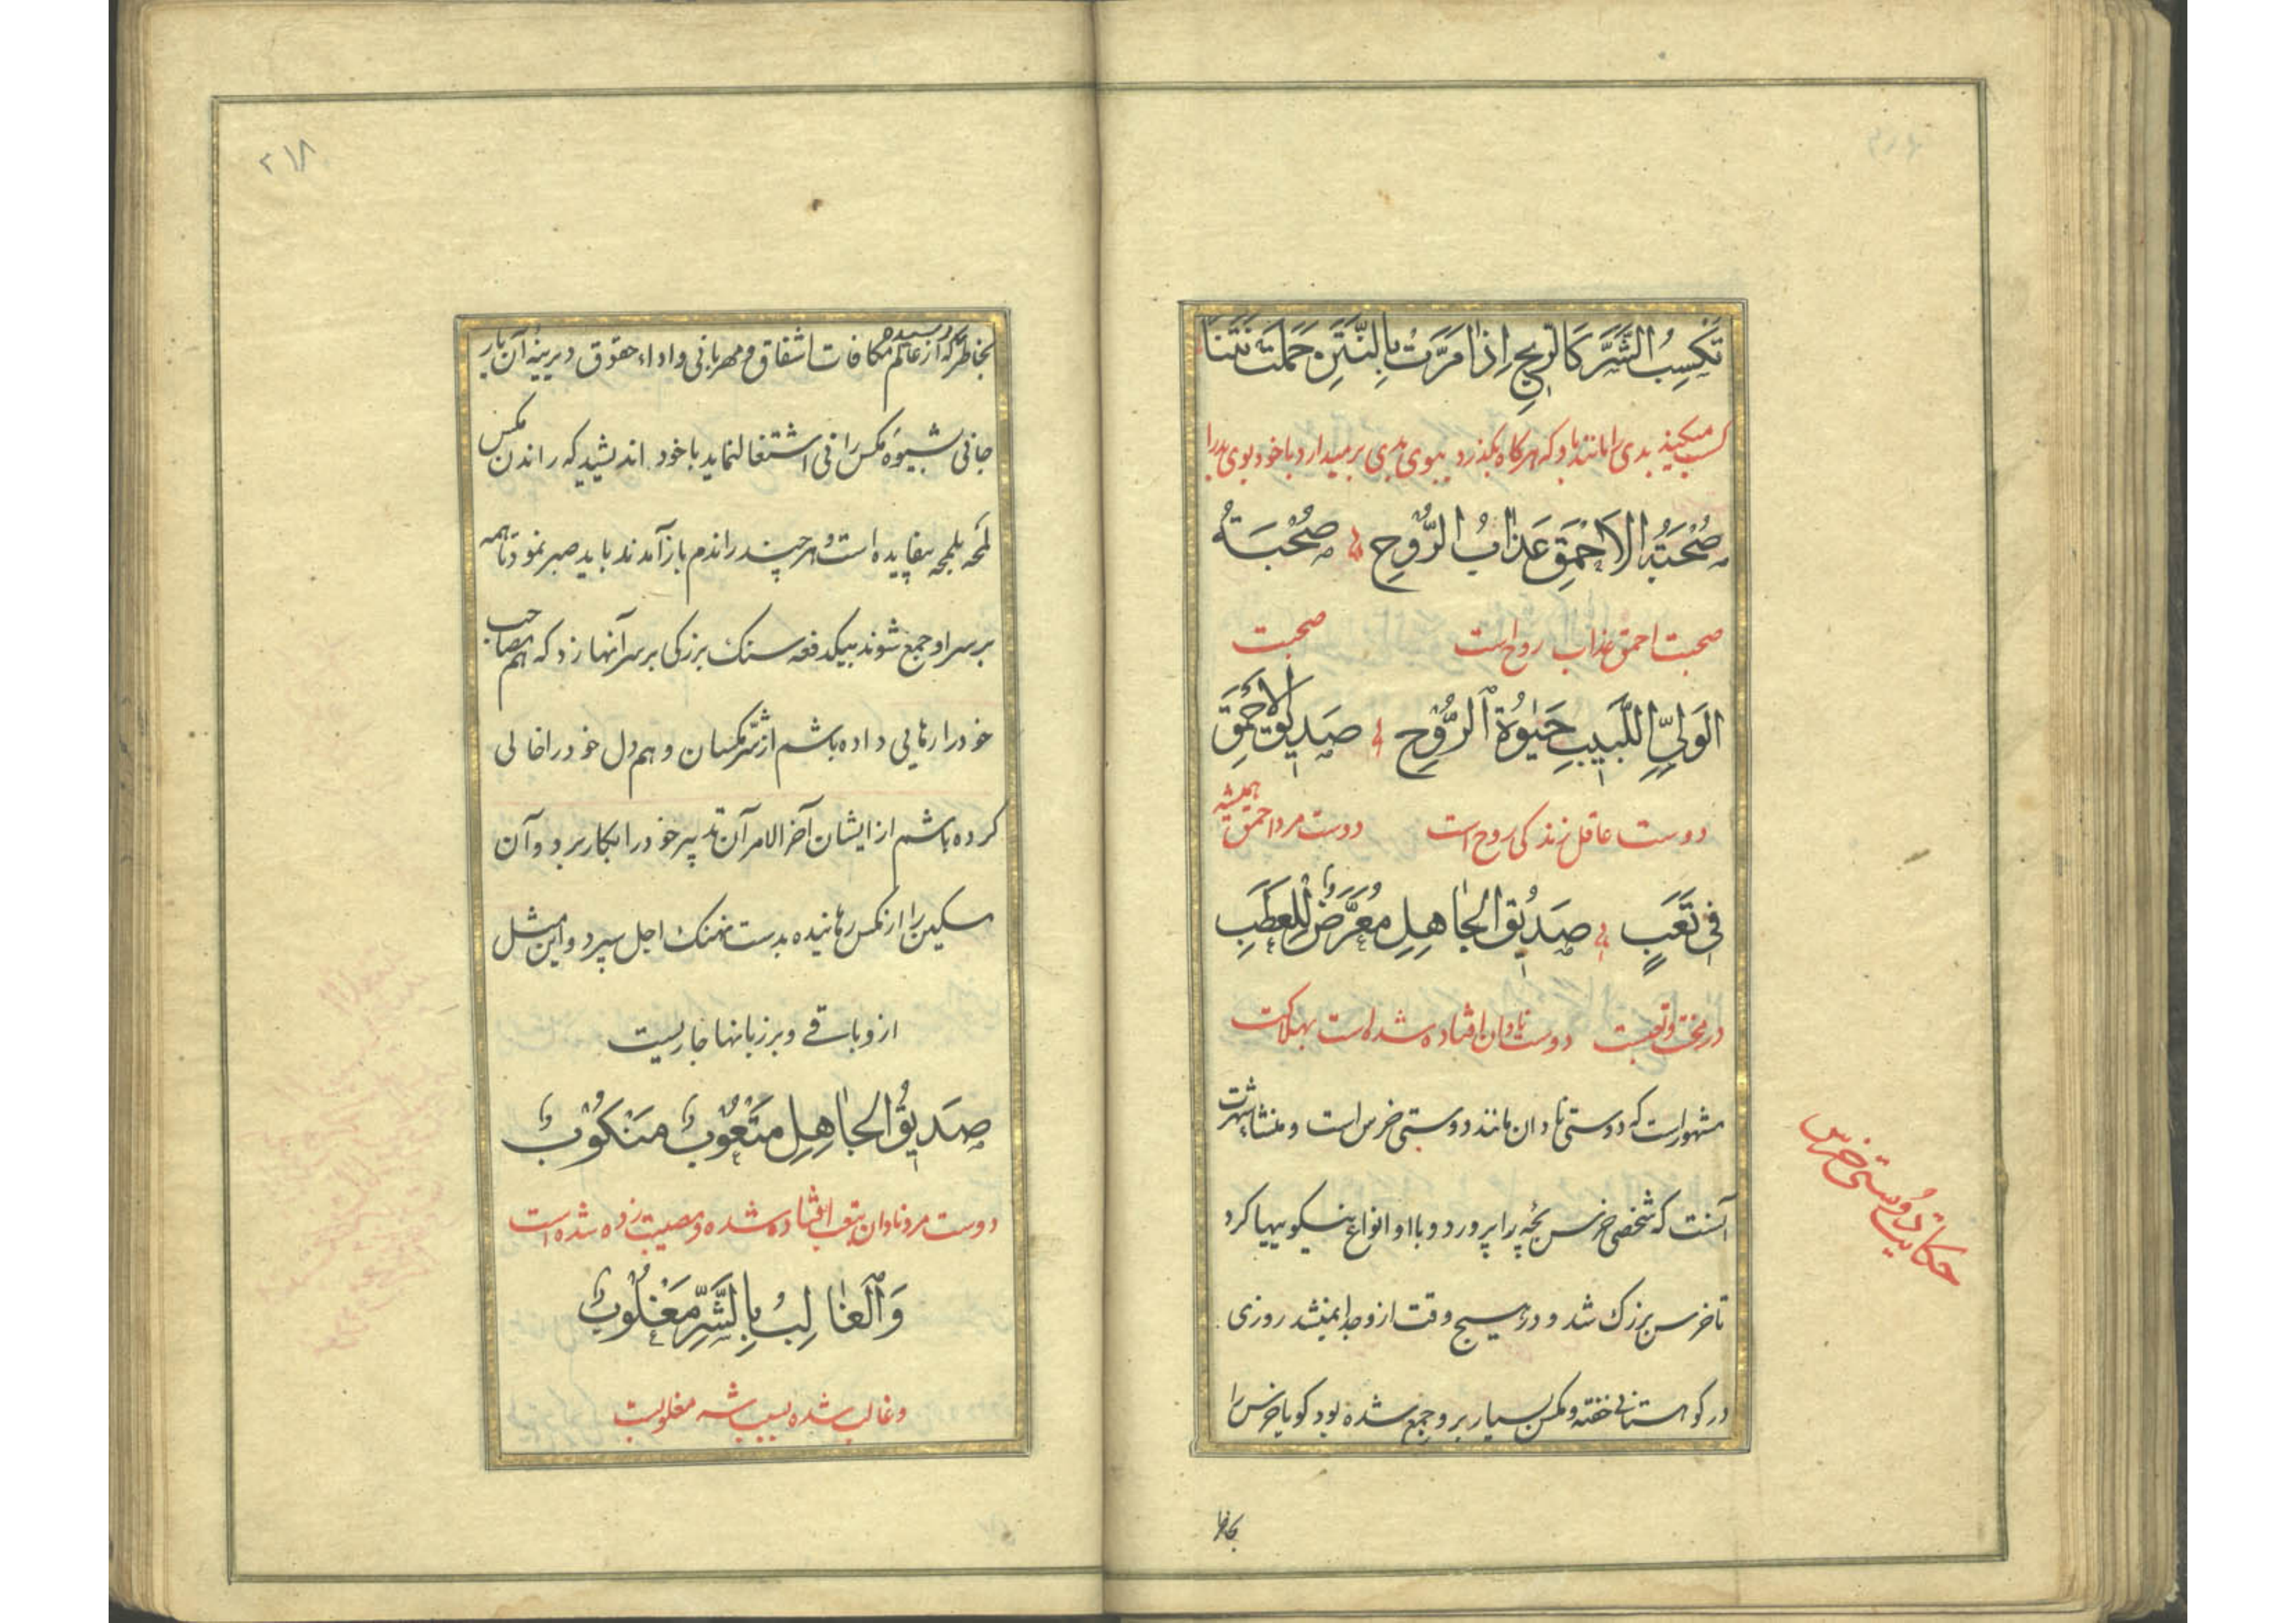 تَكْسِبُ الشَّرَّ كَالرِّيحِ اِذٰا مَرَّتْ بِالنَّتِنِ حَمَلَتْ نَتَنًا
كسب میكند بدی را مانند باد كه هر كاه بكذرد ببوی بدی برمیدارد با خود بوی بد را
صُحْبَةُ الاَحْمَقِ عَذٰابُ الرُّوْحِ صُحْبَةُ
صحبت احمق عذاب روح است صحبت
الوَلِيِّ اللَّبيبِ حَيٰوةُ الرُّوْحِ صَديقُ الاَحْمَقِ
دوست عاقل زندكی روح است دوست مرد احمق همیشه
في تَعَبٍ صَديْقُ الجٰاهِلِ مُعَرَّضٌ لِلْعَطَبِ
در محنت و تعبست دوست نادان افتاده شده است بهلاكت
مشهور است كه دوستی نادان مانند دوستی خرس است و منشاء شهرت
آنست كه شخصی خرس بچه را پرورد و با او انواع نیكوییها كرد
حكایت دوستی خرس
تا خرس بزرك شد و در هیچ وقت از و جدا نمیشد روزی
در كوهستانی خفته و مكس بسیار بر و جمع شده بود كویا خرس را
بخاطر
۲۱۸
بخاطر رسیده كه از عالم مكافات اشفاق و مهربانی و اداء حقوق دیرینهٔ آن یار
جانی بشیوه مكس رانی اشتغال نماید با خود اندیشید كه راندن مكس
لمحه بلمحه بیفایده است و هر چند راندم باز آمدند باید صبر نمود تا همه
بر سر او جمع شوند بیكدفعه سنك بزركی بر سر آنها زد كه هم مصاحب
خود را رهایی داده باشم از شر مكسان و هم دل خود را خالی
كرده باشم از ایشان آخر الامر آن تدبیر خود را بكار برد و آن
مسكین را از مكس رهانیده بدست نهنك اجل سپرد و این مثل
از و باقی و بر زبانها جاریست
صَديقُ الجٰاهِلِ مَتْعُوْبٌ مَنْكُوْبٌ
دوست مرد نادان بتعب افتاده شده و مصیبت زده شده است
وَالغٰالِبُ بِالشَّرِّ مَغْلُوْبٌ
و غالب شده بسبب شر مغلوبست